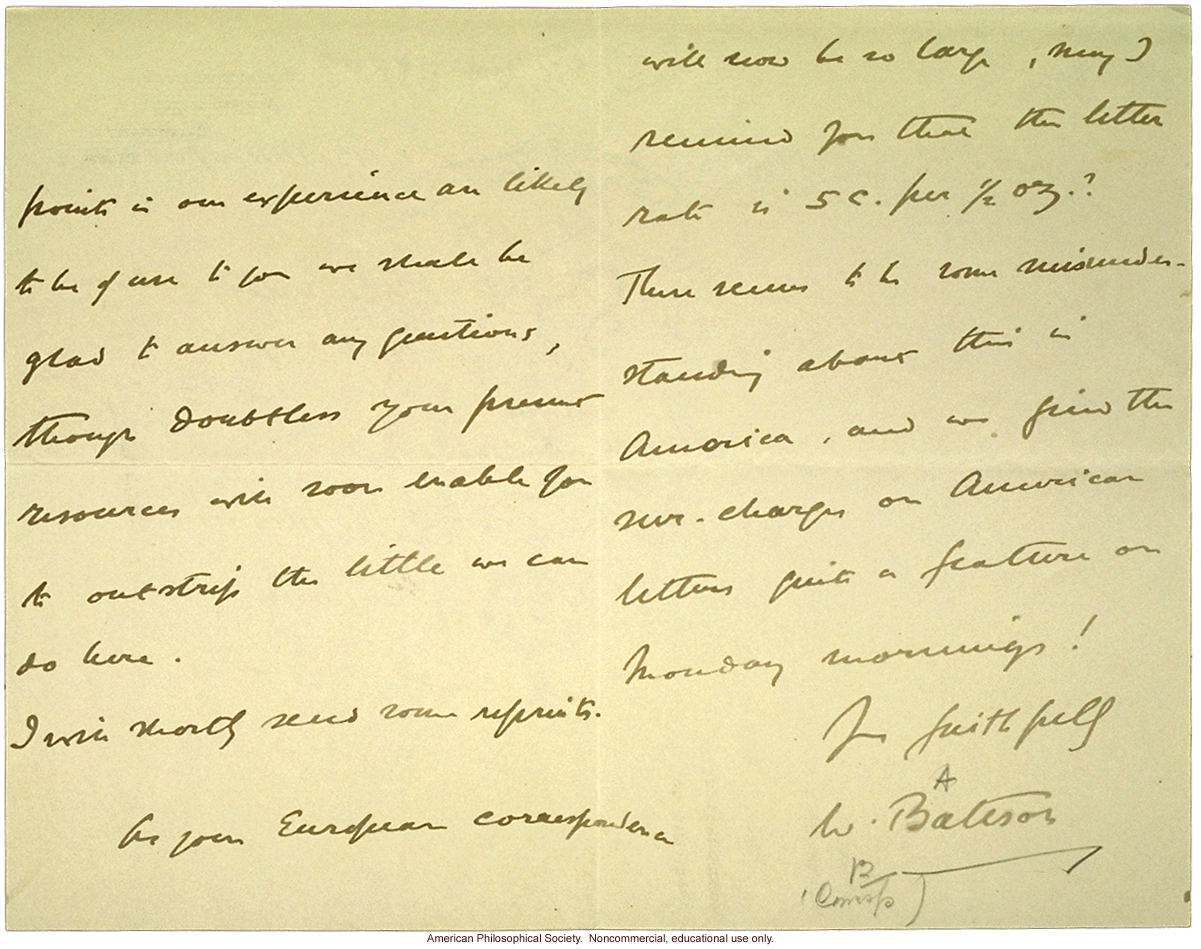 points in our experience are likely
to be of use to you we shall be
glad to answer any questions,
though doubtless your present
resources will soon enable you
to outstrip the little we can
do here.
I will shortly send some reprints.
As your European correspondence
will now be so large, may I
remind you that the letter
rate is 5 c. per ½ oz.?
There seems to be some misunder-
standing about this in
America, and we find the
sur-charges on American
letters quite a feature on
Monday mornings!
Yrs faithfully
A
W. Bateson
B
(Comsp)
American Philosophical Society. Noncommercial, educational use only.